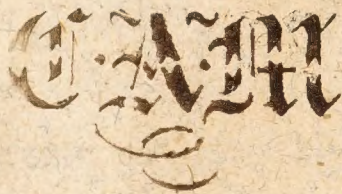 C. A. M